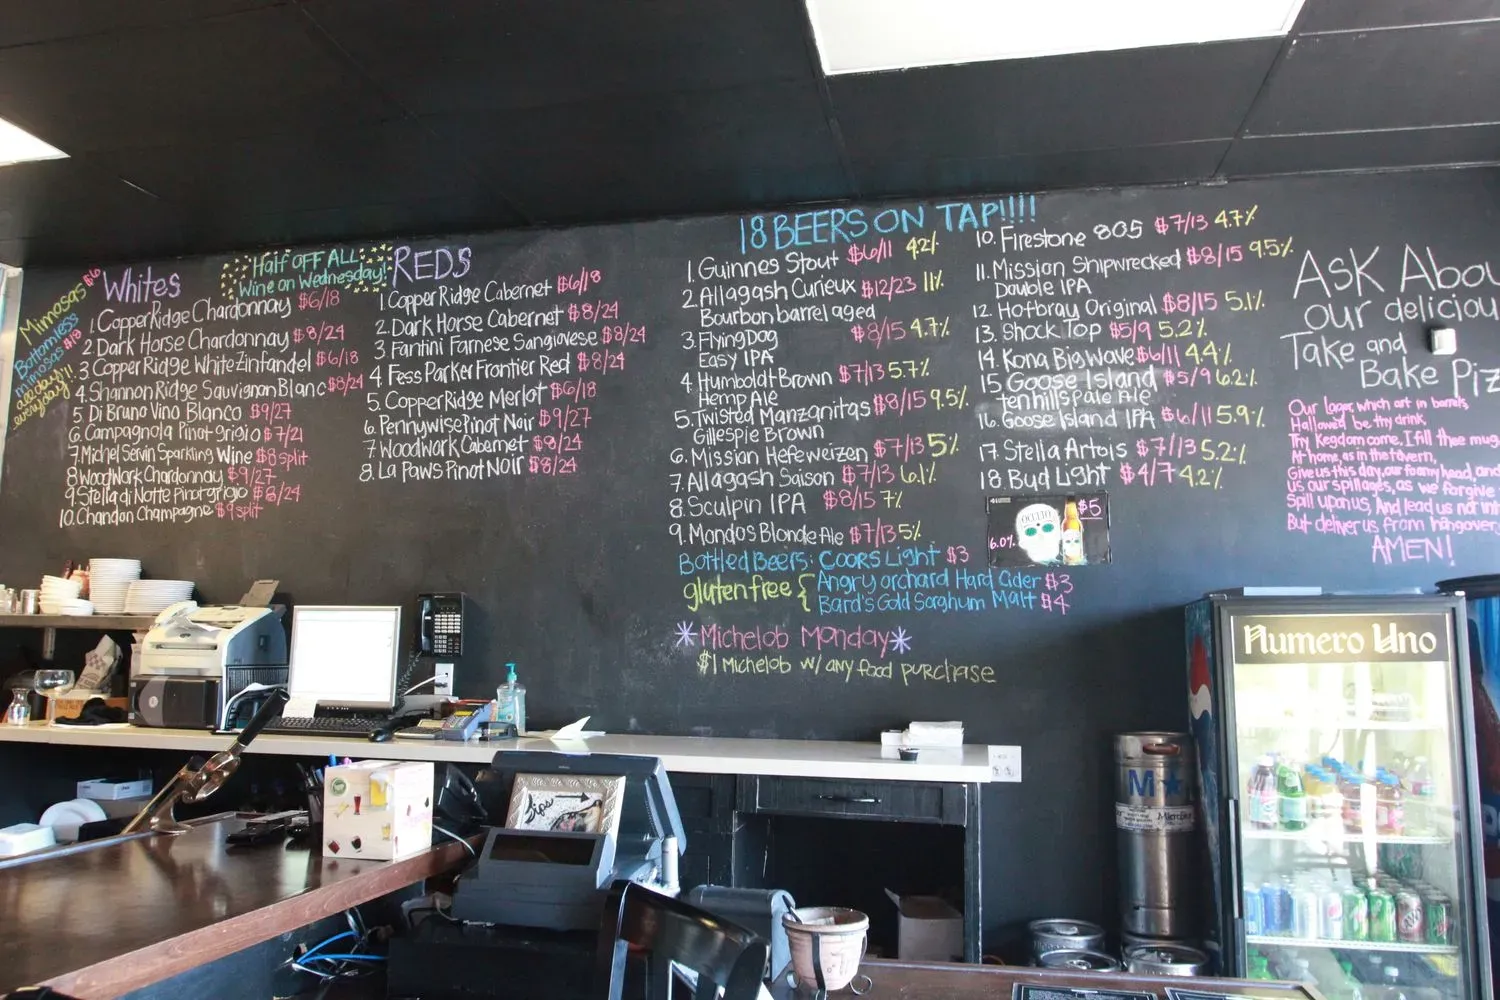 Mimosas $6
Bottomless
mimosas $18
all day!!
everyday!!
Whites
1. Copper Ridge Chardonnay $6/18
2. Dark Horse Chardonnay $8/24
3. Copper Ridge White Zinfandel $6/18
4. Shannon Ridge Sauvignon Blanc $8/24
5. Di Bruno Vino Blanco $9/27
6. Campagnola Pinot grigio $7/21
7. Michel Servin Sparkling Wine $8 split
8. Woodwork Chardonnay $9/27
9. Stella di Notte Pinot grigio $8/24
10. Chandon Champagne $9 split
Half OFF ALL
Wine on Wednesday!
REDS
1. Copper Ridge Cabernet $6/18
2. Dark Horse Cabernet $8/24
3. Fantini Farnese Sangiovese $8/24
4. Fess Parker Frontier Red $8/24
5. Copper Ridge Merlot $6/18
6. Pennywise Pinot Noir $9/27
7. Woodwork Cabernet $8/24
8. La Paws Pinot Noir $8/24
18 BEERS ON TAP!!!!
1. Guinnes Stout $6/11 4.2%
2. Allagash Curieux $12/23 11%
Bourbon barrel aged
3. Flying Dog $8/15 4.7%
Easy IPA
4. Humboldt Brown $7/13 5.7%
Hemp Ale
5. Twisted Manzanitas $8/15 9.5%
Gillespie Brown
6. Mission Hefeweizen $7/13 5%
7. Allagash Saison $7/13 6.1%
8. Sculpin IPA $8/15 7%
9. Mondos Blonde Ale $7/13 5%
10. Firestone 805 $7/13 4.7%
11. Mission Shipwrecked $8/15 9.5%
Double IPA
12. Hofbray Original $8/15 5.1%
13. Shock Top $5/9 5.2%
14. Kona Big Wave $6/11 4.4%
15. Goose Island $5/9 6.2%
ten hills Pale Ale
16. Goose Island IPA $6/11 5.9%
17. Stella Artois $7/13 5.2%
18. Bud Light $4/7 4.2%
OCULTO
$5
6.0%
Bottled Beers: Coors Light $3
gluten free { Angry orchard Hard Cider $3
Bard's Gold Sorghum Malt $4
*Michelob Monday*
$1 Michelob w/ any food purchase
ASK Abou
our deliciou
Take and
Bake Piz
Our lager, which art in barrels,
Hallowed be thy drink,
Thy Kegdom come, I fill thee mug,
At home, as in the tavern,
Give us this day, our foamy head, and
us our spillages, as we forgive
Spill upon us, And lead us not int
But deliver us from hangover,
AMEN!
Numero Uno
Tips
M